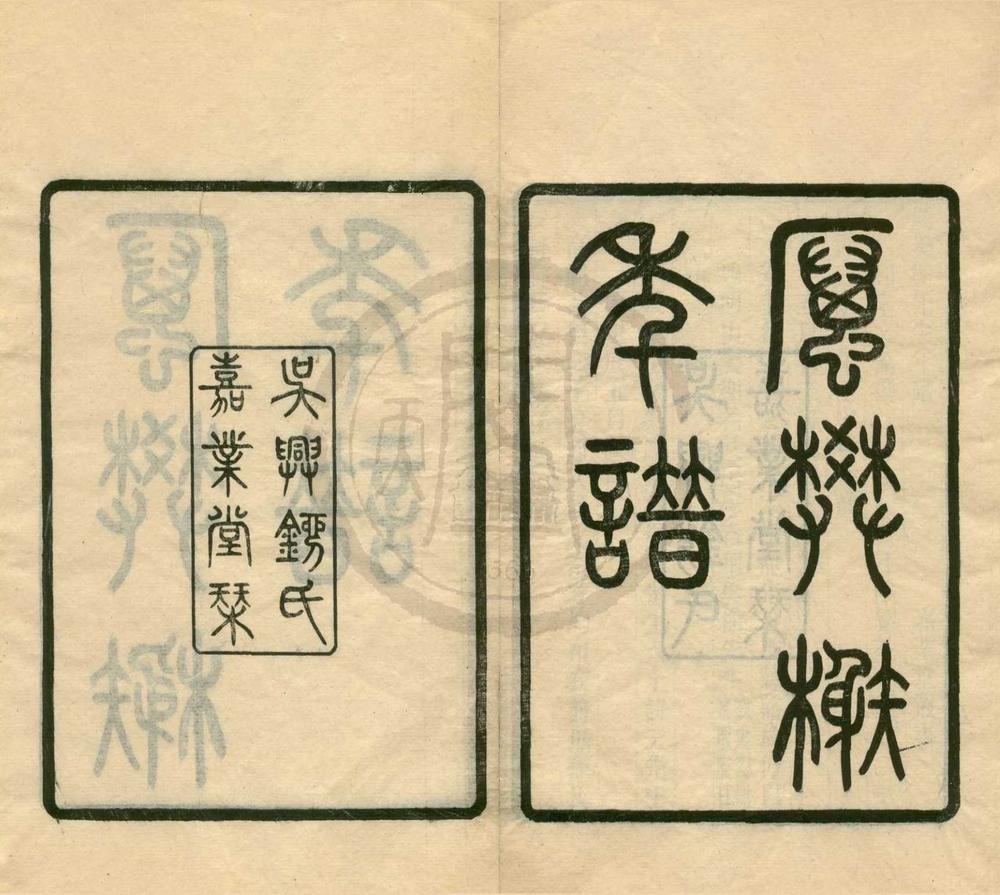 厲樊榭
年譜
吳興鎦氏
嘉業堂栞